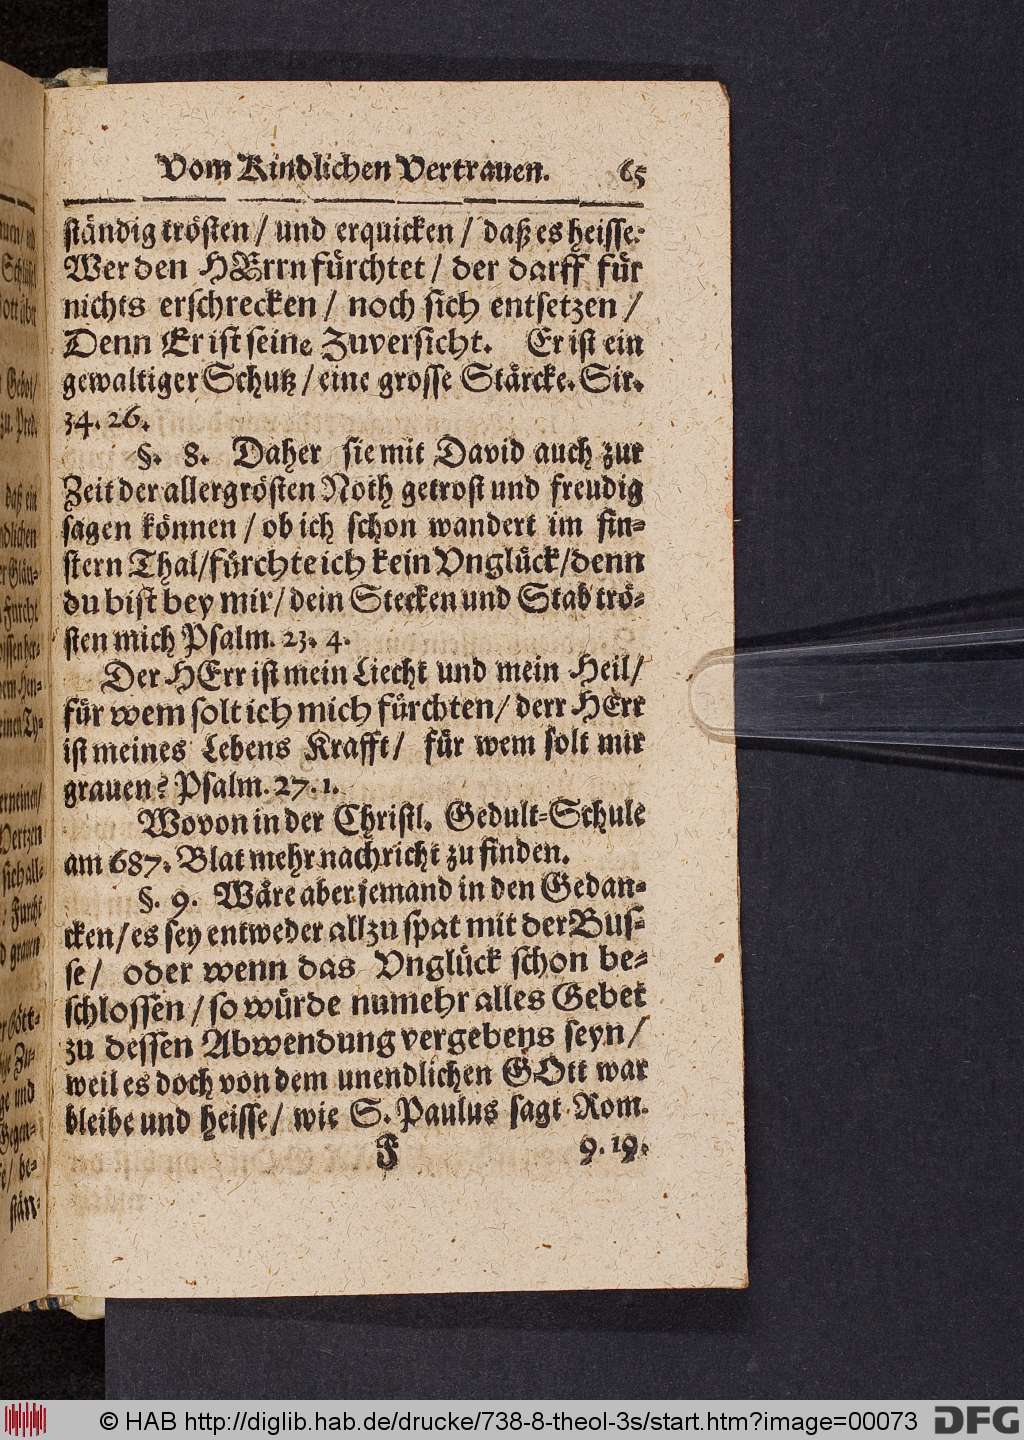 Vom Kindlichen Vertrauen. 65
ständig trösten / und erquicken / daß es heisse:
Wer den HErrn fürchtet / der darff für
nichts erschrecken / noch sich entsetzen /
Denn Er ist seine Zuversicht. Er ist ein
gewaltiger Schutz / eine grosse Stärcke. Sir.
34. 26.
§. 8. Daher sie mit David auch zur
Zeit der allergrösten Noth getrost und freudig
sagen können / ob ich schon wandert im fin-
stern Thal/ fürchte ich kein Vnglück/ denn
du bist bey mir/ dein Stecken und Stab trö-
sten mich Psalm. 23. 4.
Der HErr ist mein Liecht und mein Heil/
für wem solt ich mich fürchten/ derr HErr
ist meines Lebens Krafft/ für wem solt mir
grauen? Psalm. 27. 1.
Wovon in der Christl. Gedult-Schule
am 687. Blat mehr nachricht zu finden.
§. 9. Wäre aber jemand in den Gedan-
cken/ es sey entweder allzu spat mit der Bus-
se/ oder wenn das Vnglück schon be-
schlossen / so würde numehr alles Gebet
zu dessen Abwendung vergebens seyn/
weil es doch von dem unendlichen GOtt war
bleibe und heisse/ wie S. Paulus sagt Rom.
J 9. 19.
© HAB http://diglib.hab.de/drucke/738-8-theol-3s/start.htm?image=00073 DFG